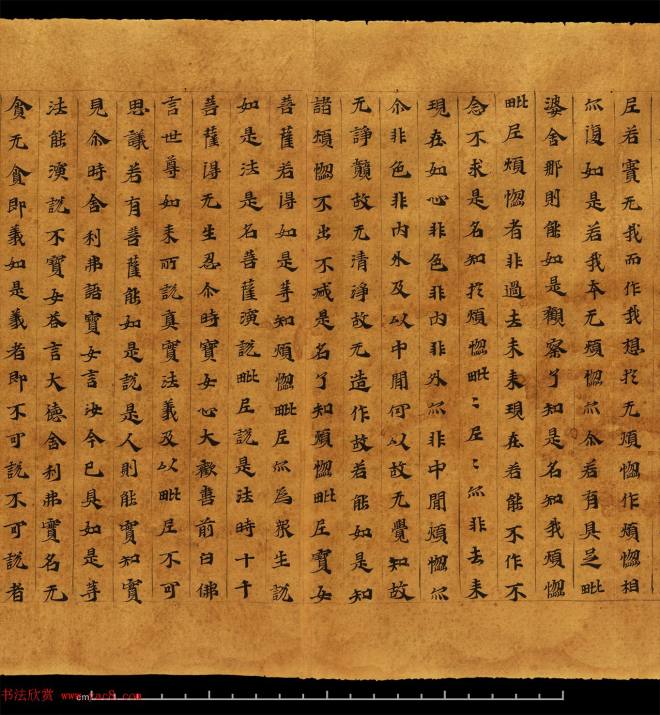 尼若實无我而作我想於无煩惱作煩惱相
尒復如是若我本无煩惱尒尒若有具足毗
婆舍那則能如是觀察了知是名知我煩惱
毗尼煩惱者非過去未来現在若能不作不
念不求是名知於煩惱毗〻尼〻尒非去来
現在如心非色非內非外尒非中間煩惱尒
尒非色非內外及以中間何以故无覺知故
无諍競故无清淨故无造作故若能如是知
諸煩惱不出不滅是名了知煩惱毗尼寶女
菩薩若得如是等知煩惱毗尼尒為眾生說
如是法是名菩薩演說毗尼說是法時十千
菩薩得无生忍尒時寶女心大歡喜前白佛
言世尊如来所說真實法義及以毗尼不可
思議若有菩薩能如是說是人則能實知寶
見尒時舍利弗語寶女言汝今已具如是等
法能演說不寶女荅言大德舍利弗實名无
貪无貪即義如是義者即不可說不可說者
书法欣赏 www.yac8.com
cm